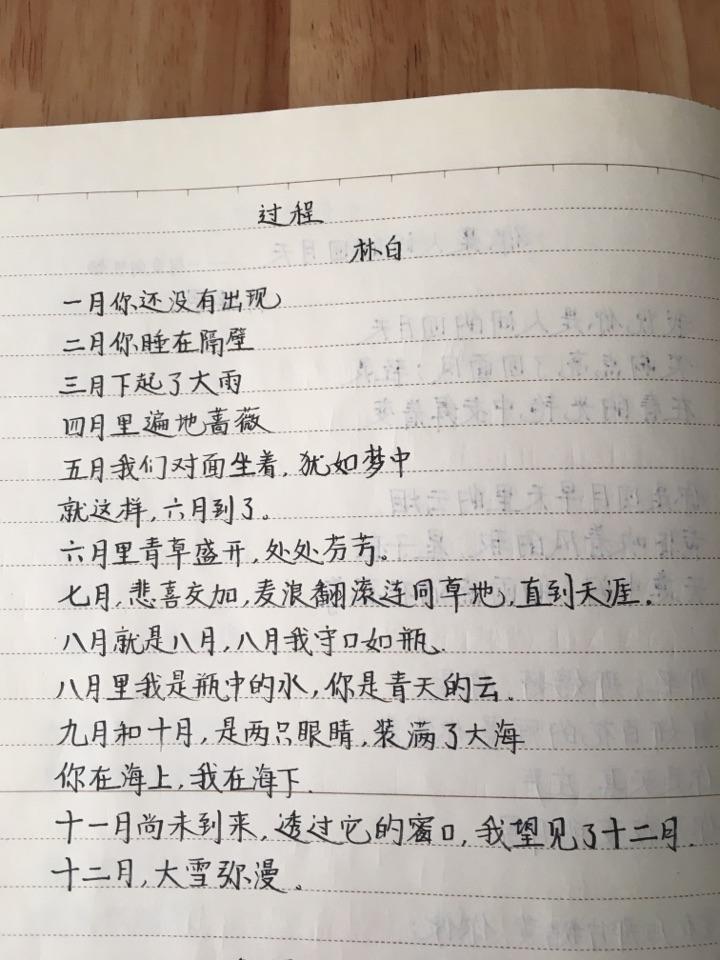 过程
林白
一月你还没有出现
二月你睡在隔壁
三月下起了大雨
四月里遍地蔷薇
五月我们对面坐着，犹如梦中
就这样，六月到了。
六月里青草盛开，处处芬芳。
七月，悲喜交加，麦浪翻滚连同草地，直到天涯。
八月就是八月，八月我守口如瓶.
八月里我是瓶中的水，你是青天的云.
九月和十月，是两只眼睛，装满了大海
你在海上，我在海下.
十一月尚未到来，透过它的窗口，我望见了十二月.
十二月，大雪弥漫。